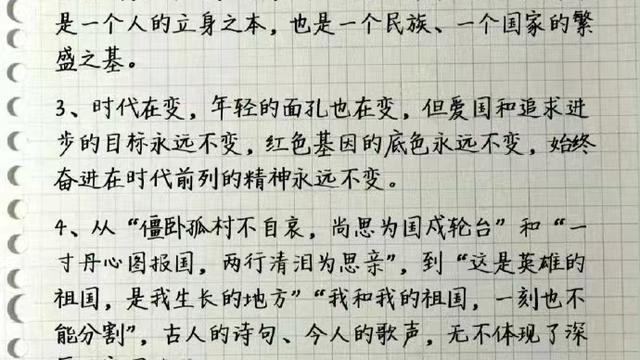 是一个人的立身之本，也是一个民族、一个国家的繁
盛之基。
3、时代在变，年轻的面孔也在变，但爱国和追求进
步的目标永远不变，红色基因的底色永远不变，始终
奋进在时代前列的精神永远不变。
4、从“僵卧孤村不自哀，尚思为国戍轮台”和“一
寸丹心图报国，两行清泪为思亲”，到“这是英雄的
祖国，是我生长的地方”“我和我的祖国，一刻也不
能分割”，古人的诗句、今人的歌声，无不体现了深